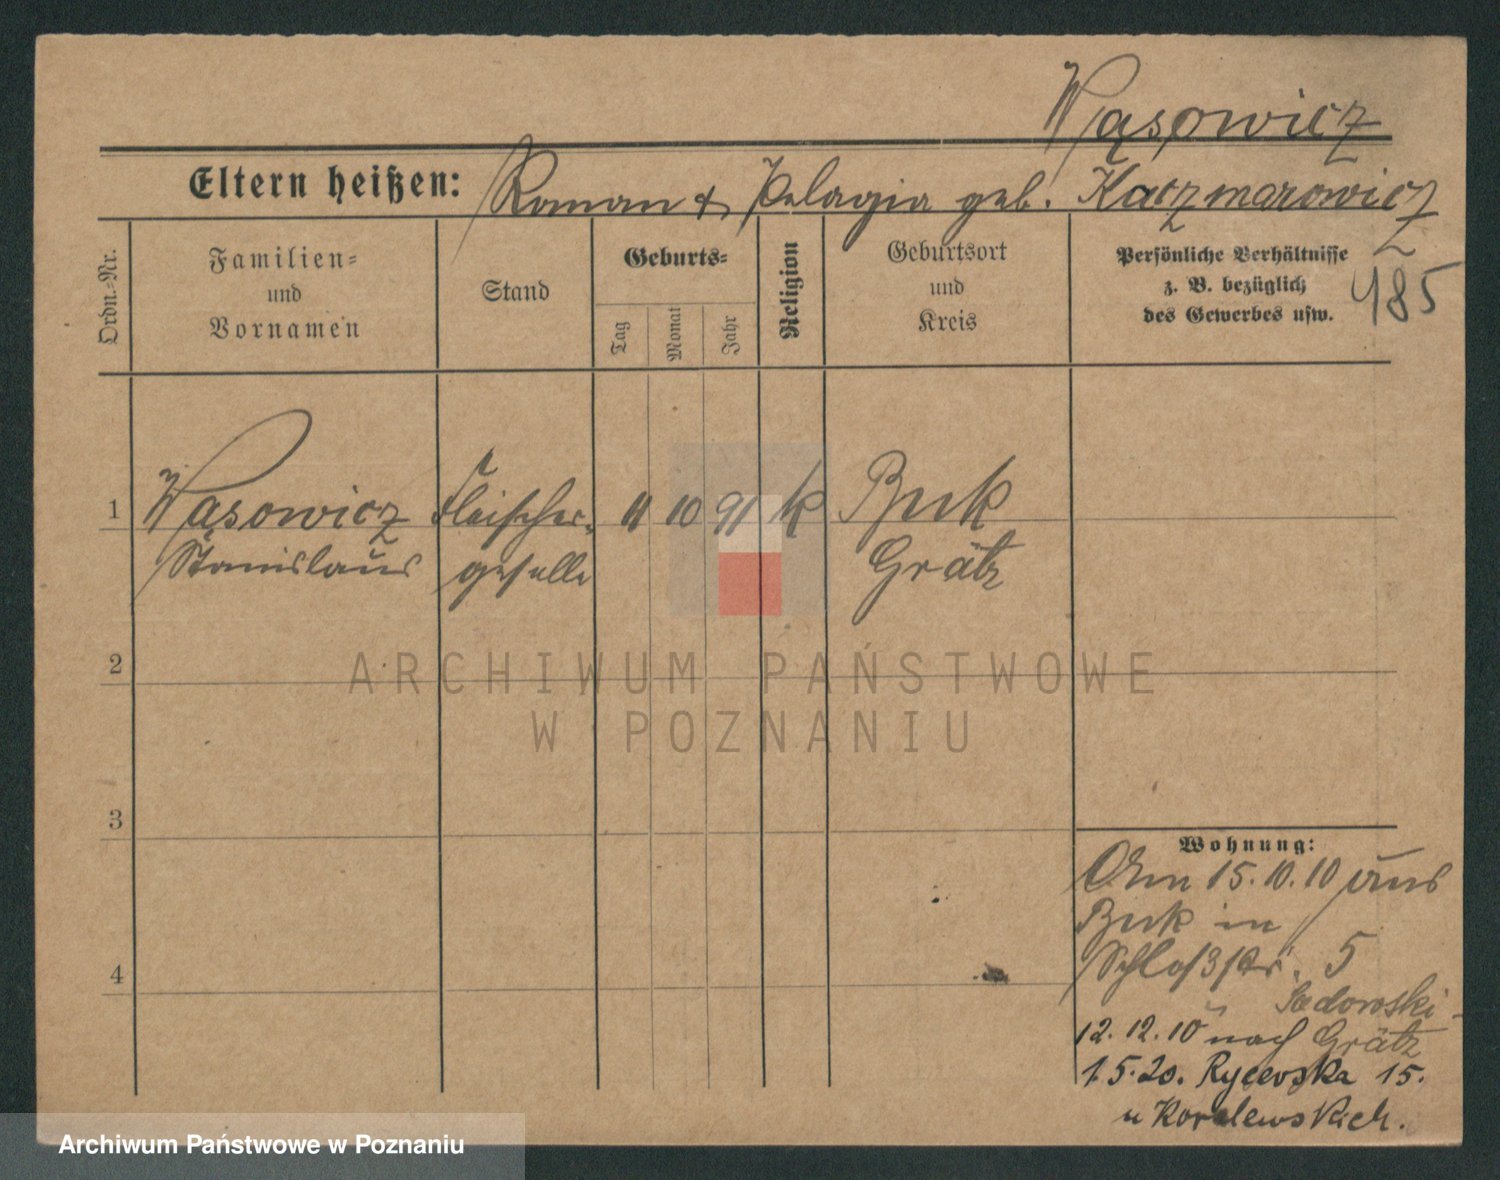 Wąsowicz
Eltern heißen: Roman & Pelagia geb. Kaczmarowicz
Ordn.-Nr.
Familien-
und
Vornamen
Stand
Geburts-
Tag
Monat
Jahr
Religion
Geburtsort
und
Kreis
Persönliche Verhältnisse
z. B. bezüglich
des Gewerbes usw.
485
1 Wąsowicz Fleischer- 11 10 91 k Buk
Stanislaus geselle Grätz
2
ARCHIWUM PAŃSTWOWE
W POZNANIU
3
4
Wohnung:
15.10.10 aus
Buk in
Schloßstr. 5
Sadowski
12.12.10 nach Grätz
1.5.20. Rycerska 15.
u Koralewskich.
Archiwum Państwowe w Poznaniu